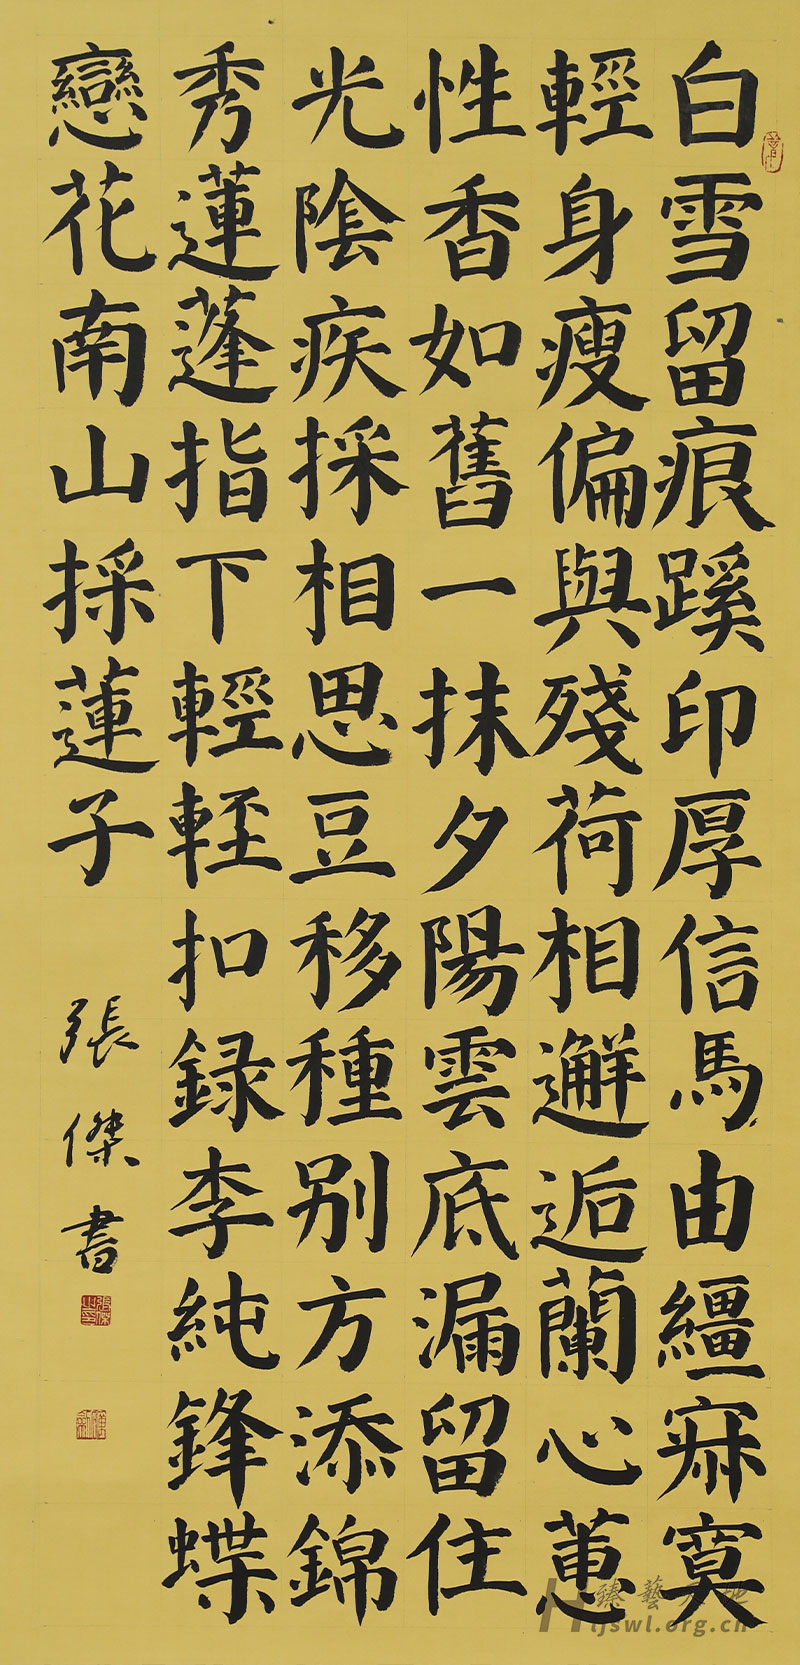 白雪留痕蹊印厚信馬由繮寂寞
輕身瘦偏與殘荷相邂逅蘭心蕙
性香如舊一抹夕陽雲底漏留住
光陰疾採相思豆移種別方添錦
秀蓮蓬指下輕輕扣録李純鋒蝶
戀花南山採蓮子
張傑書
張傑之印
臻藝天地
Hljswl.org.cn